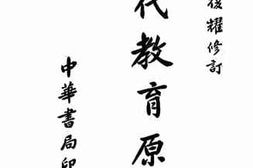 後耀修訂
代教育原
中華書局印